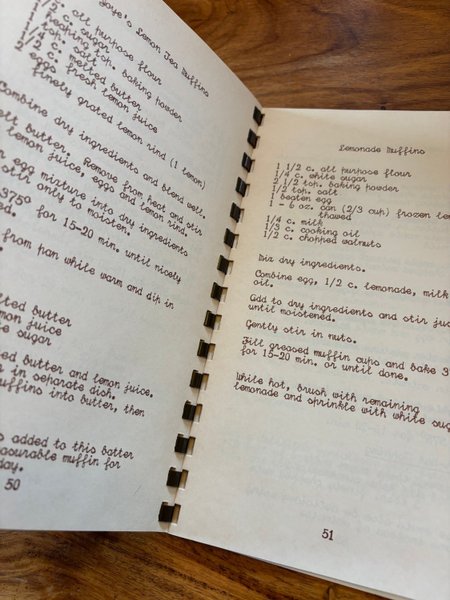 Lemon Tea Muffins
c. all purpose flour
1/2 c. sugar
heaping tsp. baking powder
tsp. salt
1/2 c. melted butter
1/2 c. fresh lemon juice
2 eggs
finely grated lemon rind (1 lemon)
Combine dry ingredients and blend well.
butter. Remove from heat and stir
lemon juice, eggs and lemon rind.
egg mixture into dry ingredients
only to moisten.
375° for 15-20 min. until nicely
from pan while warm and dip in
butter
juice
sugar
butter and lemon juice.
in separate dish.
muffins into butter, then
added to this batter
muffin for
day.
50
Lemonade Muffins
1 1/2 c. all purpose flour
1/4 c. white sugar
2 1/2 tsp. baking powder
1/2 tsp. salt
1 beaten egg
1 - 6 oz. can (2/3 cup) frozen
thawed
1/4 c. milk
1/3 c. cooking oil
1/2 c. chopped walnuts
Mix dry ingredients.
Combine egg, 1/2 c. lemonade, milk
oil.
Add to dry ingredients and stir
until moistened.
Gently stir in nuts.
Fill greased muffin cups and bake
for 15-20 min. or until done.
While hot, brush with remaining
lemonade and sprinkle with white
51